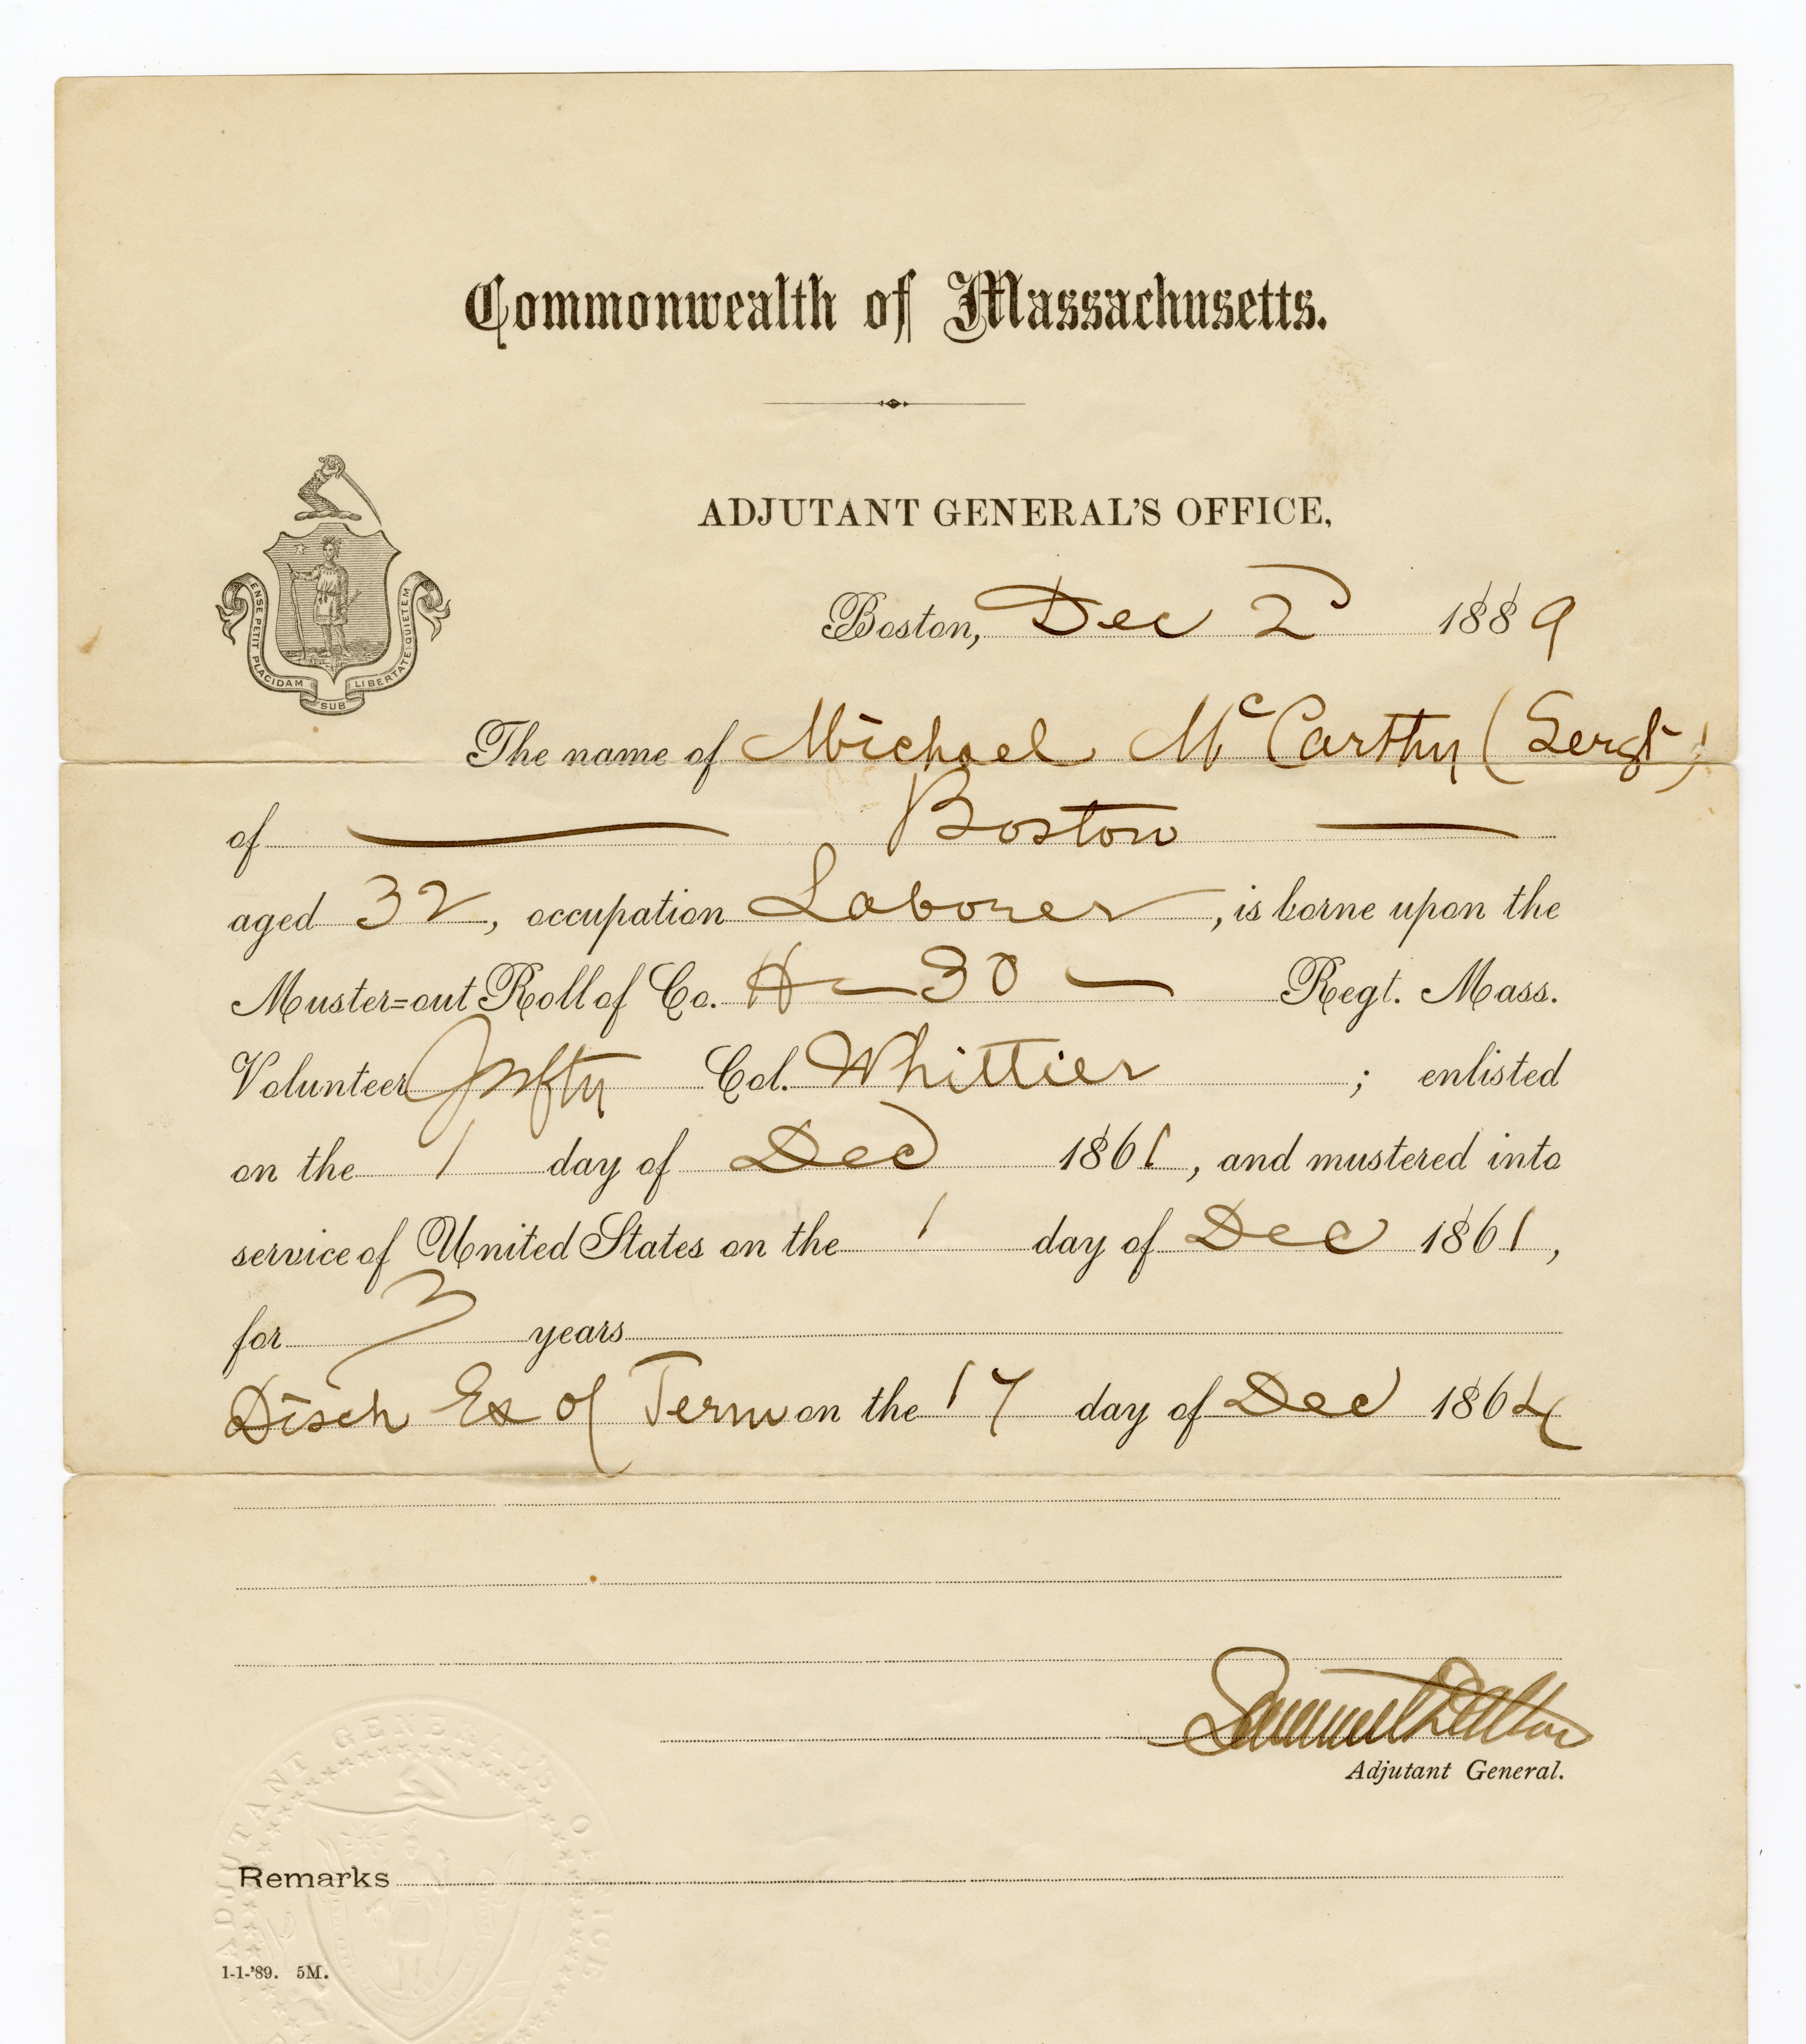 Commonwealth of Massachusetts.
ADJUTANT GENERAL'S OFFICE,
ENSE PETIT PLACIDAM SUB LIBERTATE QUIETEM
Boston, Dec 2 1889
The name of Michael McCarthy (Sergt)
of Boston
aged 32, occupation Laborer, is borne upon the
Muster=out Roll of Co. H — 30 — Regt. Mass.
Volunteer Infty Col. Whittier ; enlisted
on the 1 day of Dec 1861, and mustered into
service of United States on the 1 day of Dec 1861,
for 3 years
Disch Ex of Term on the 17 day of Dec 1864
Samuel Dalton
Adjutant General.
ADJUTANT GENERAL'S OFFICE
Remarks
1-1-'89. 5M.